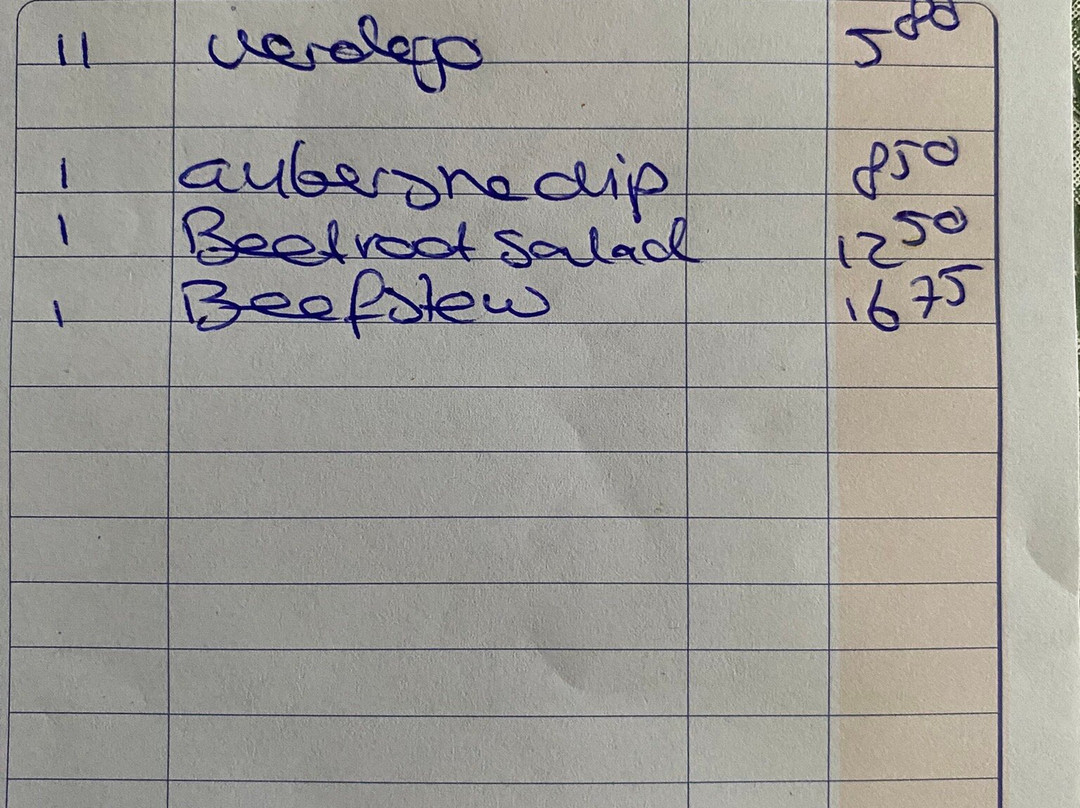 11 verdego 5 80
1 aubergine dip 8 50
1 Beetroot salad 12 50
1 Beefstew 16 75